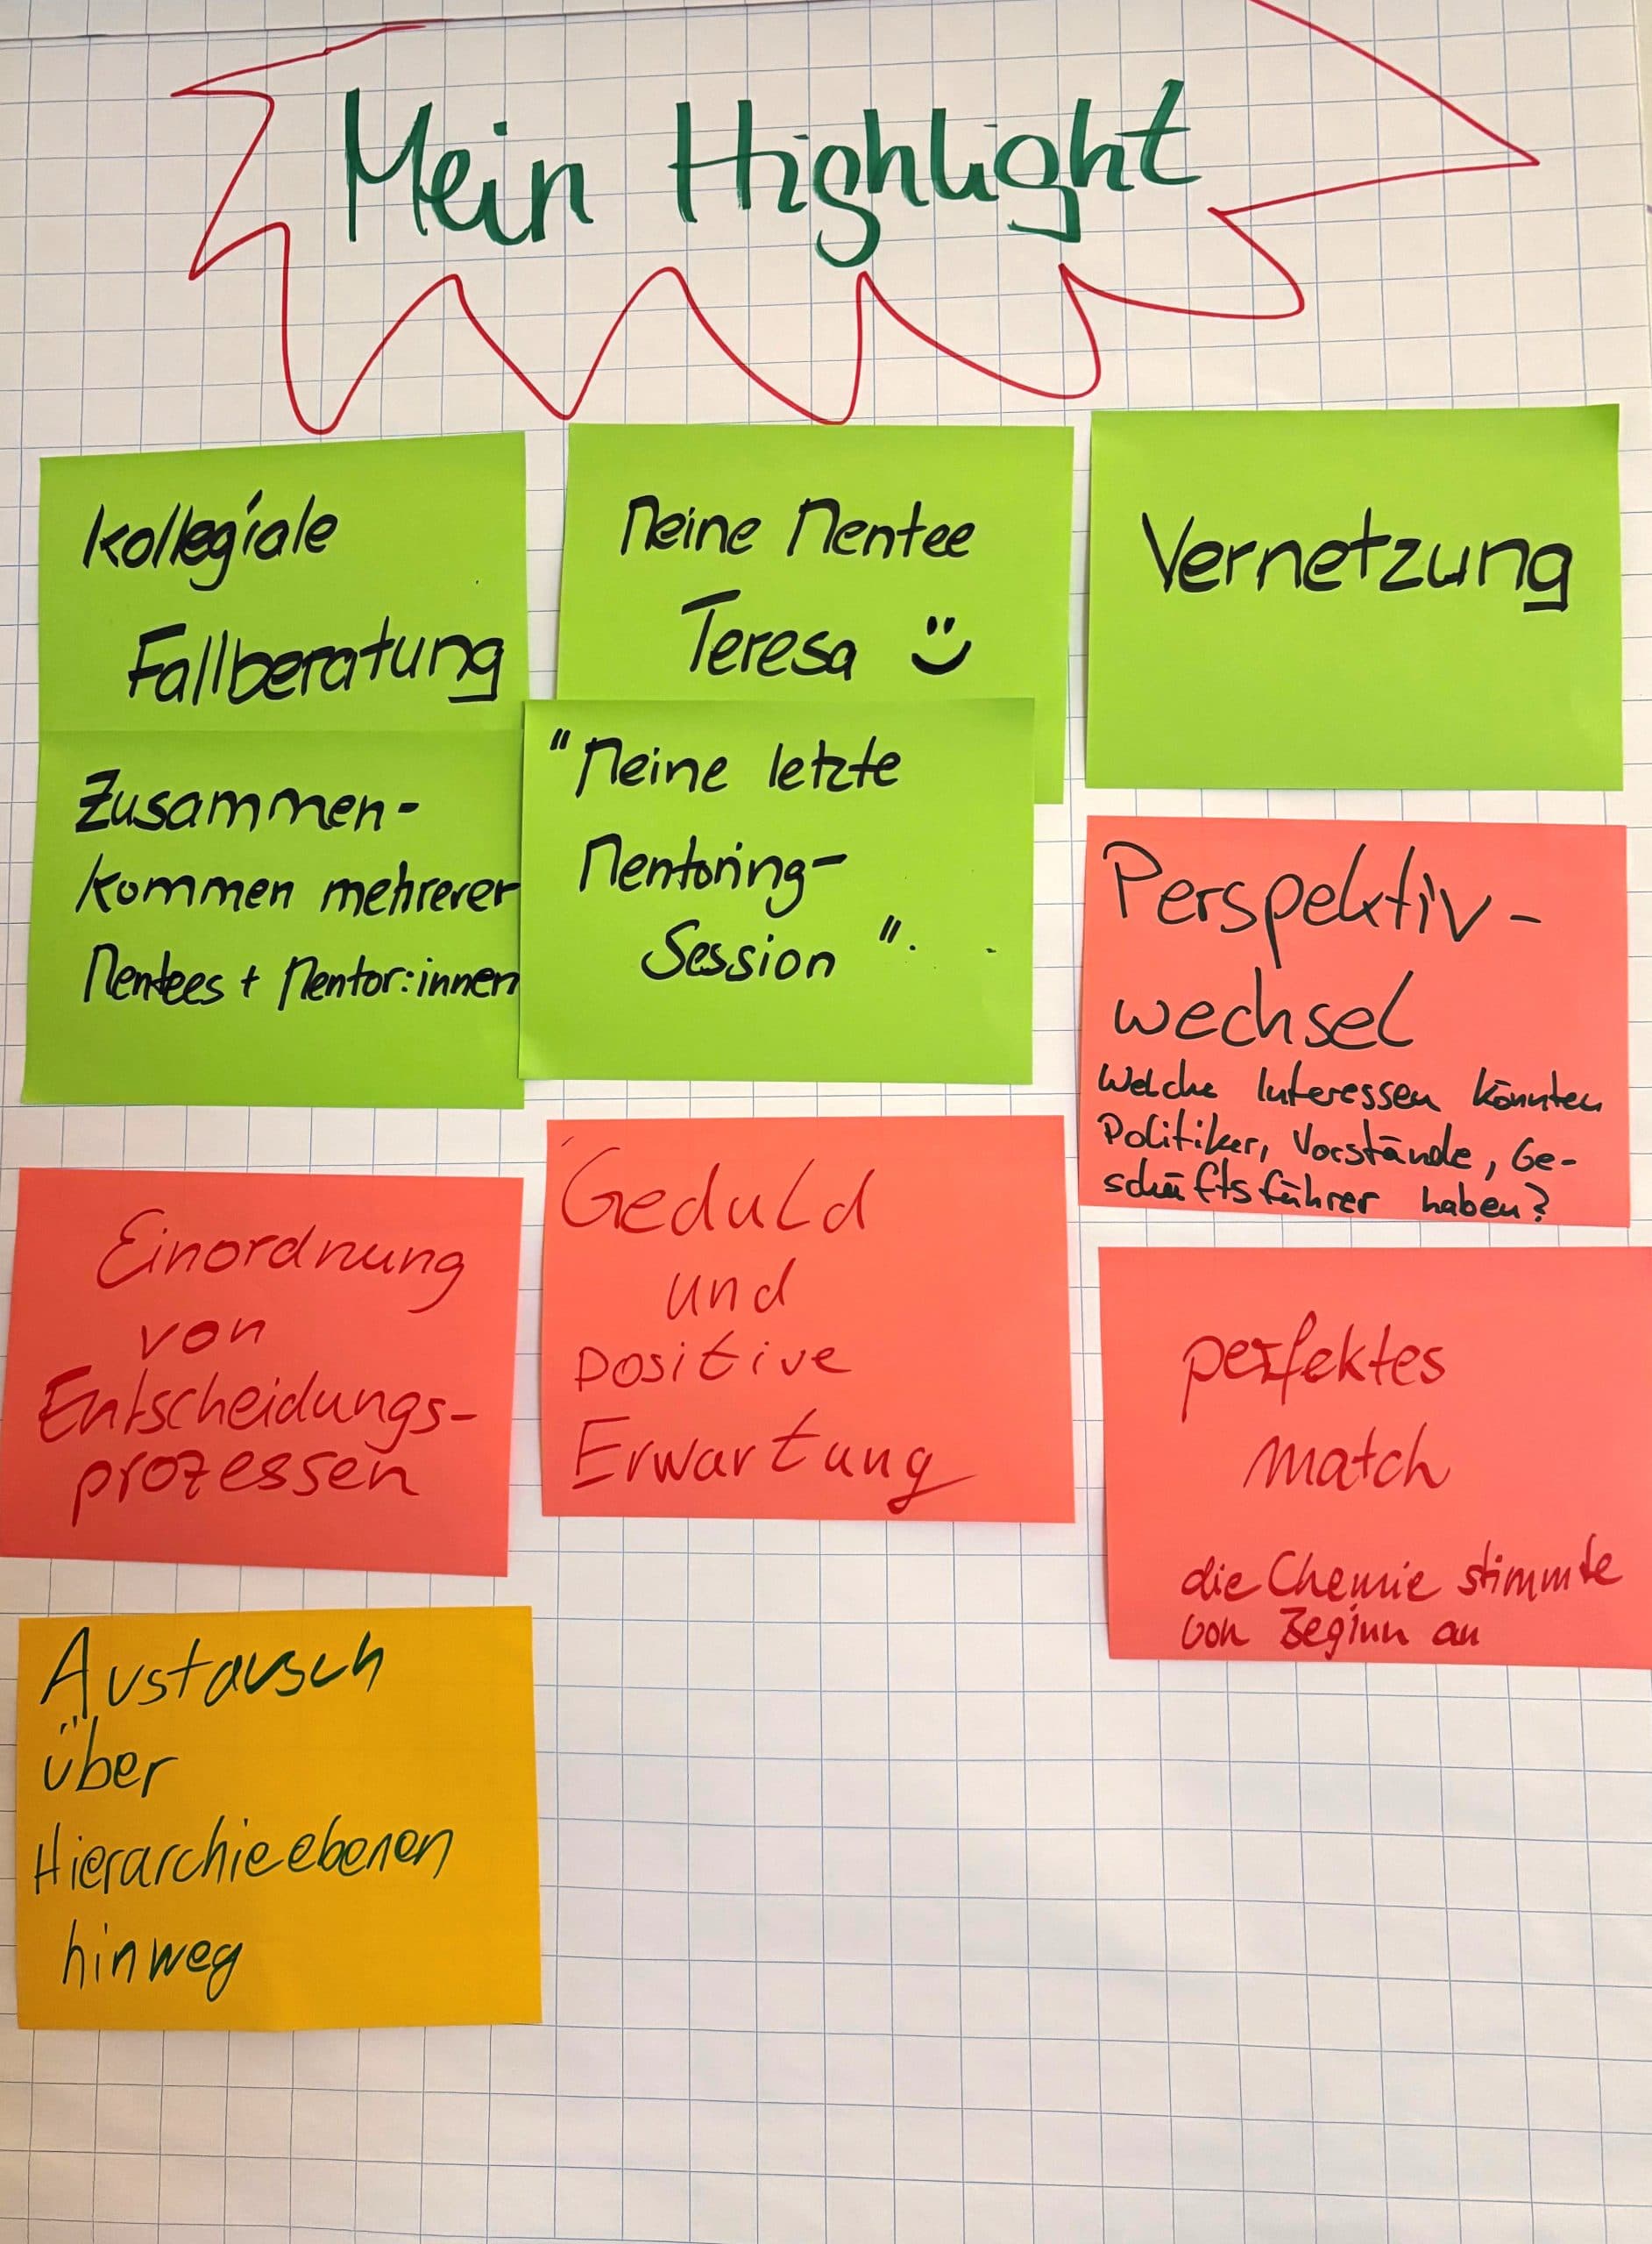 Mein Highlight
Kollegiale
Fallberatung
Meine Mentee
Teresa
Vernetzung
Zusammen-
kommen mehrerer
Mentees + Mentor:innen
"Meine letzte
Mentoring-
Session".
Perspektiv-
wechsel
Welche Interessen könnten
Politiker, Vorstände, Ge-
schäftsführer haben?
Einordnung
von
Entscheidungs-
prozessen
Geduld
und
positive
Erwartung
perfektes
match
die Chemie stimmte
von Beginn an
Austausch
über
Hierarchieebenen
hinweg